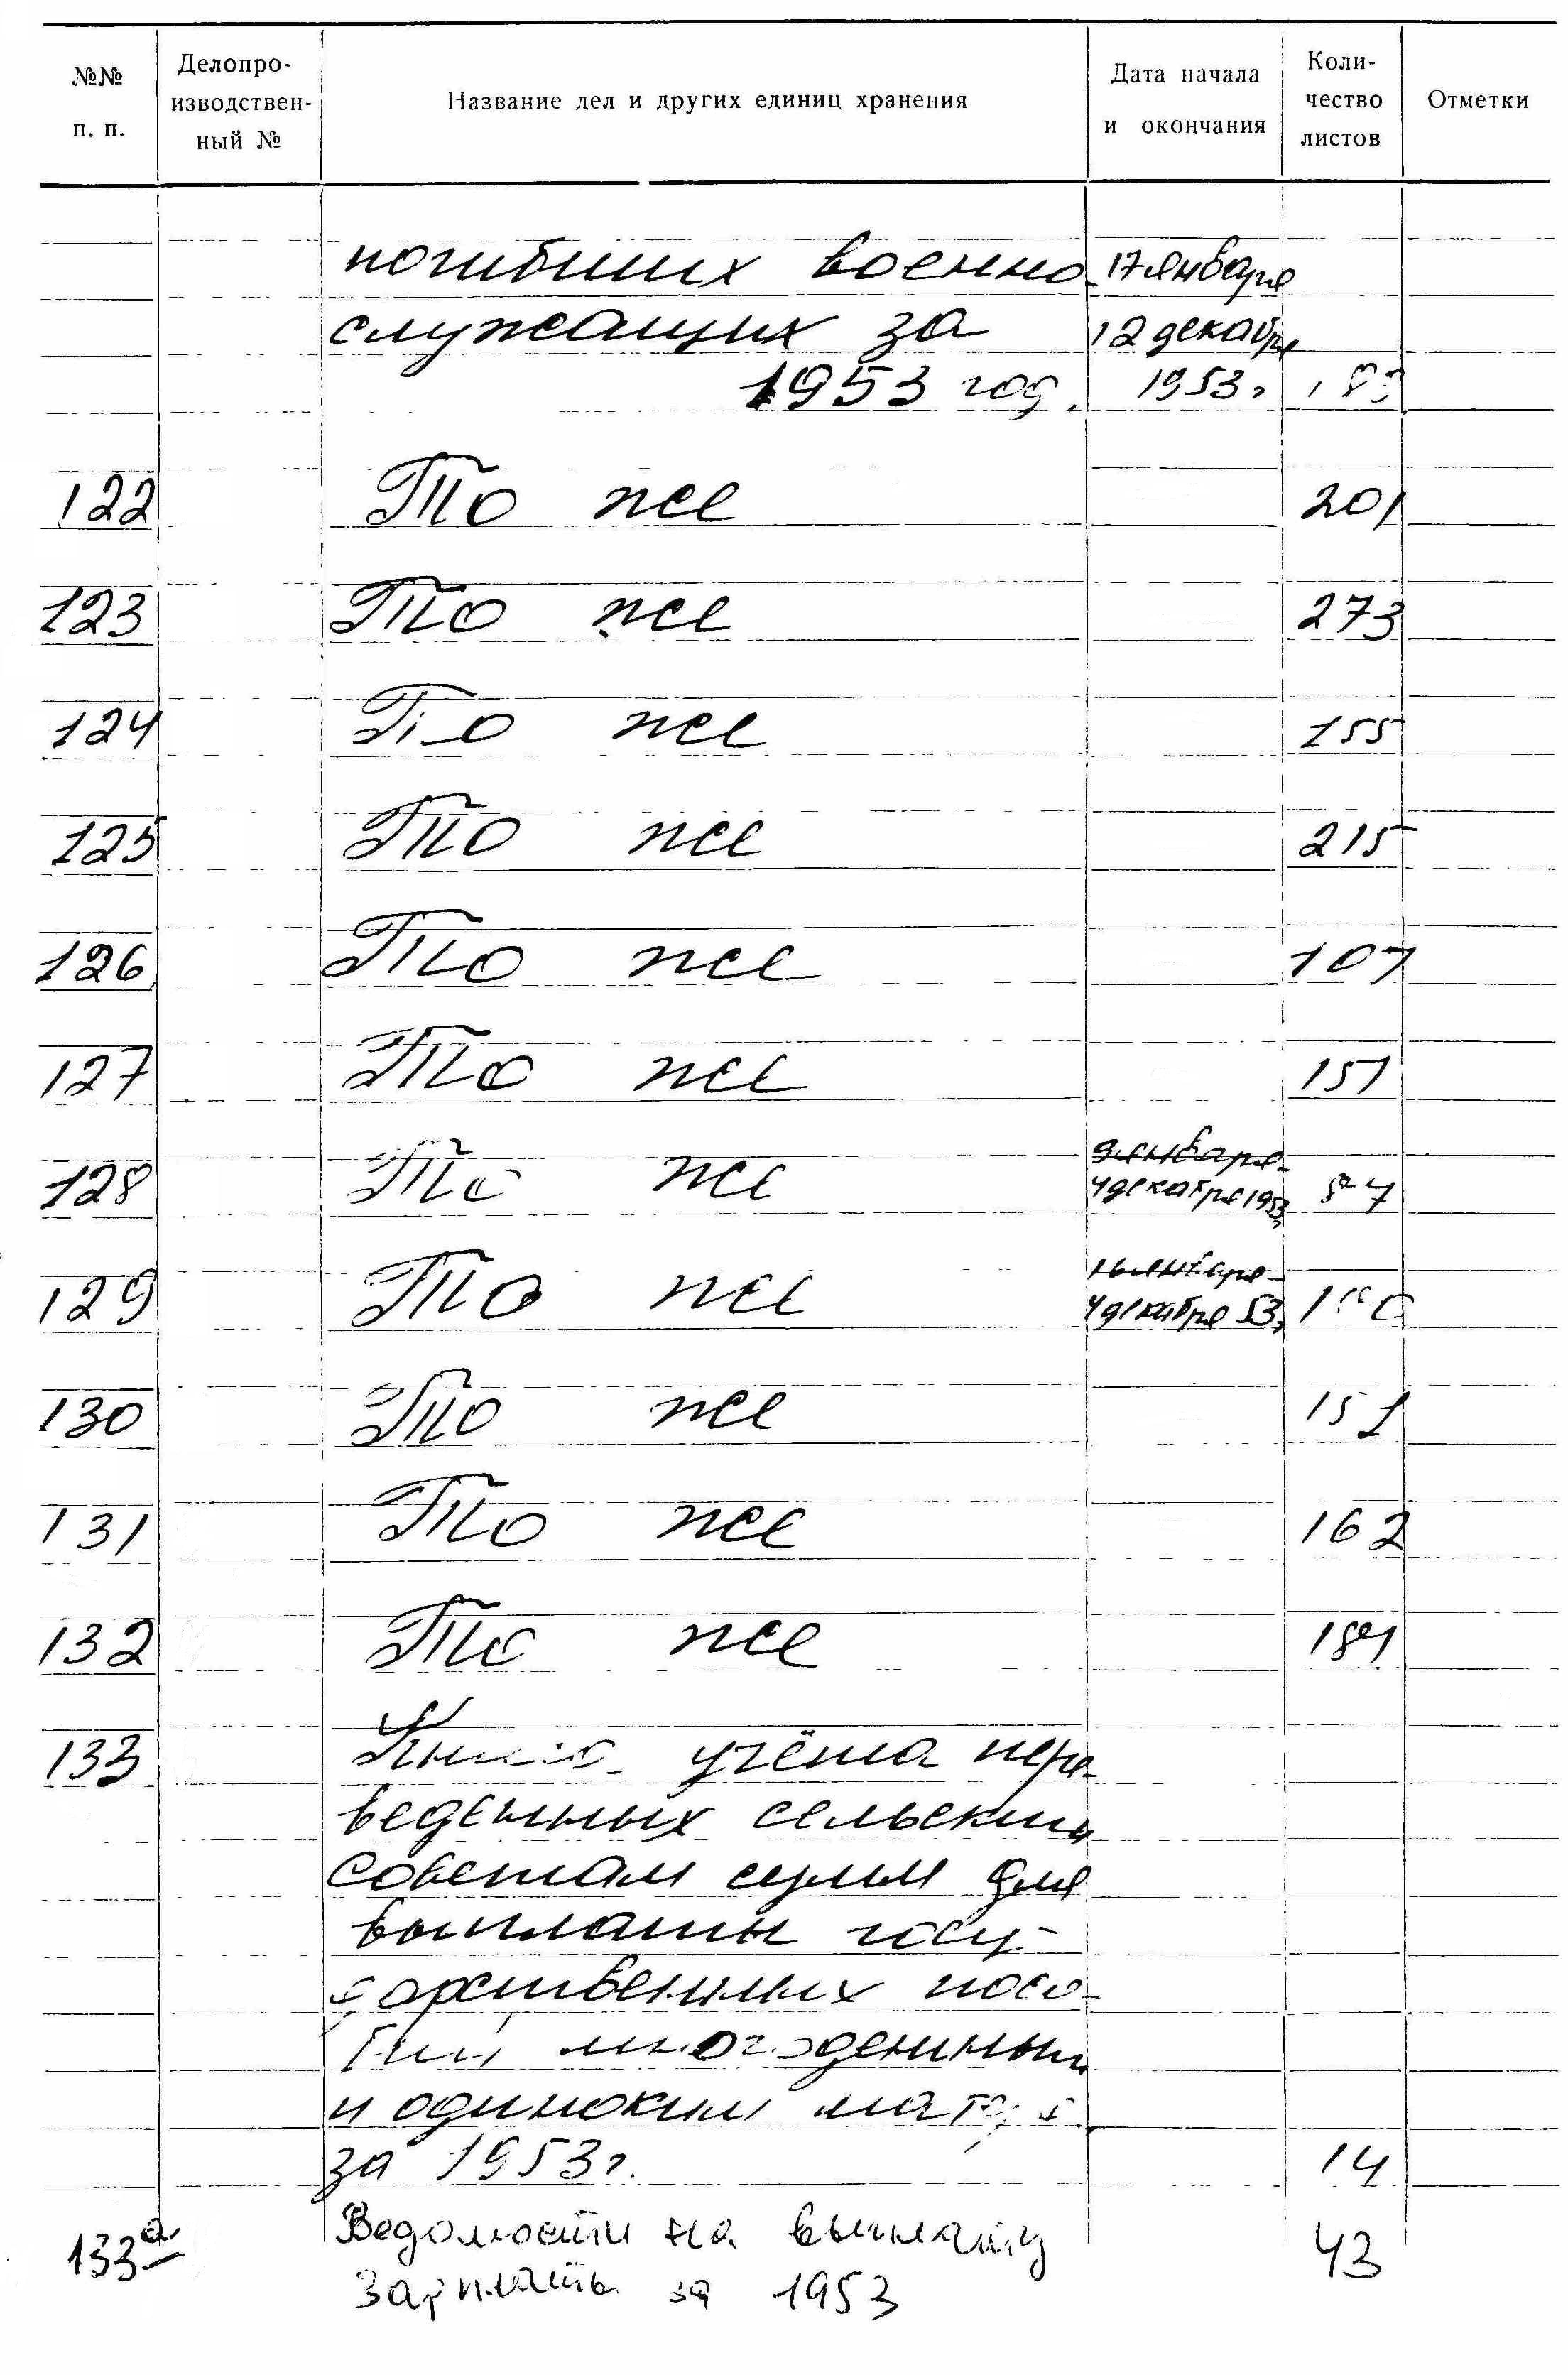 №№ п. п.
Делопро-
изводствен-
ный №
Название дел и других единиц хранения
Дата начала
и окончания
Коли-
чество
листов
Отметки
погибших военно- 17 января
служащих за 12 декабря
1953 год. 1953г
122 То же 201
123 То же 273
124 То же 155
125 То же 215
126 То же 107
127 То же 151
128 То же 9 января-
4 декабря 1953
129 То же 16 января-
4 декабря 53г
130 То же 151
131 То же 162
132 То же 184
133 Книга учёта пере-
веденных сельским
советам сумм для
выплаты госу-
дарственных посо-
бий многодетным
и одиноким матерям
за 1953г. 14
133а Ведомости на выплату 43
зарплаты за 1953